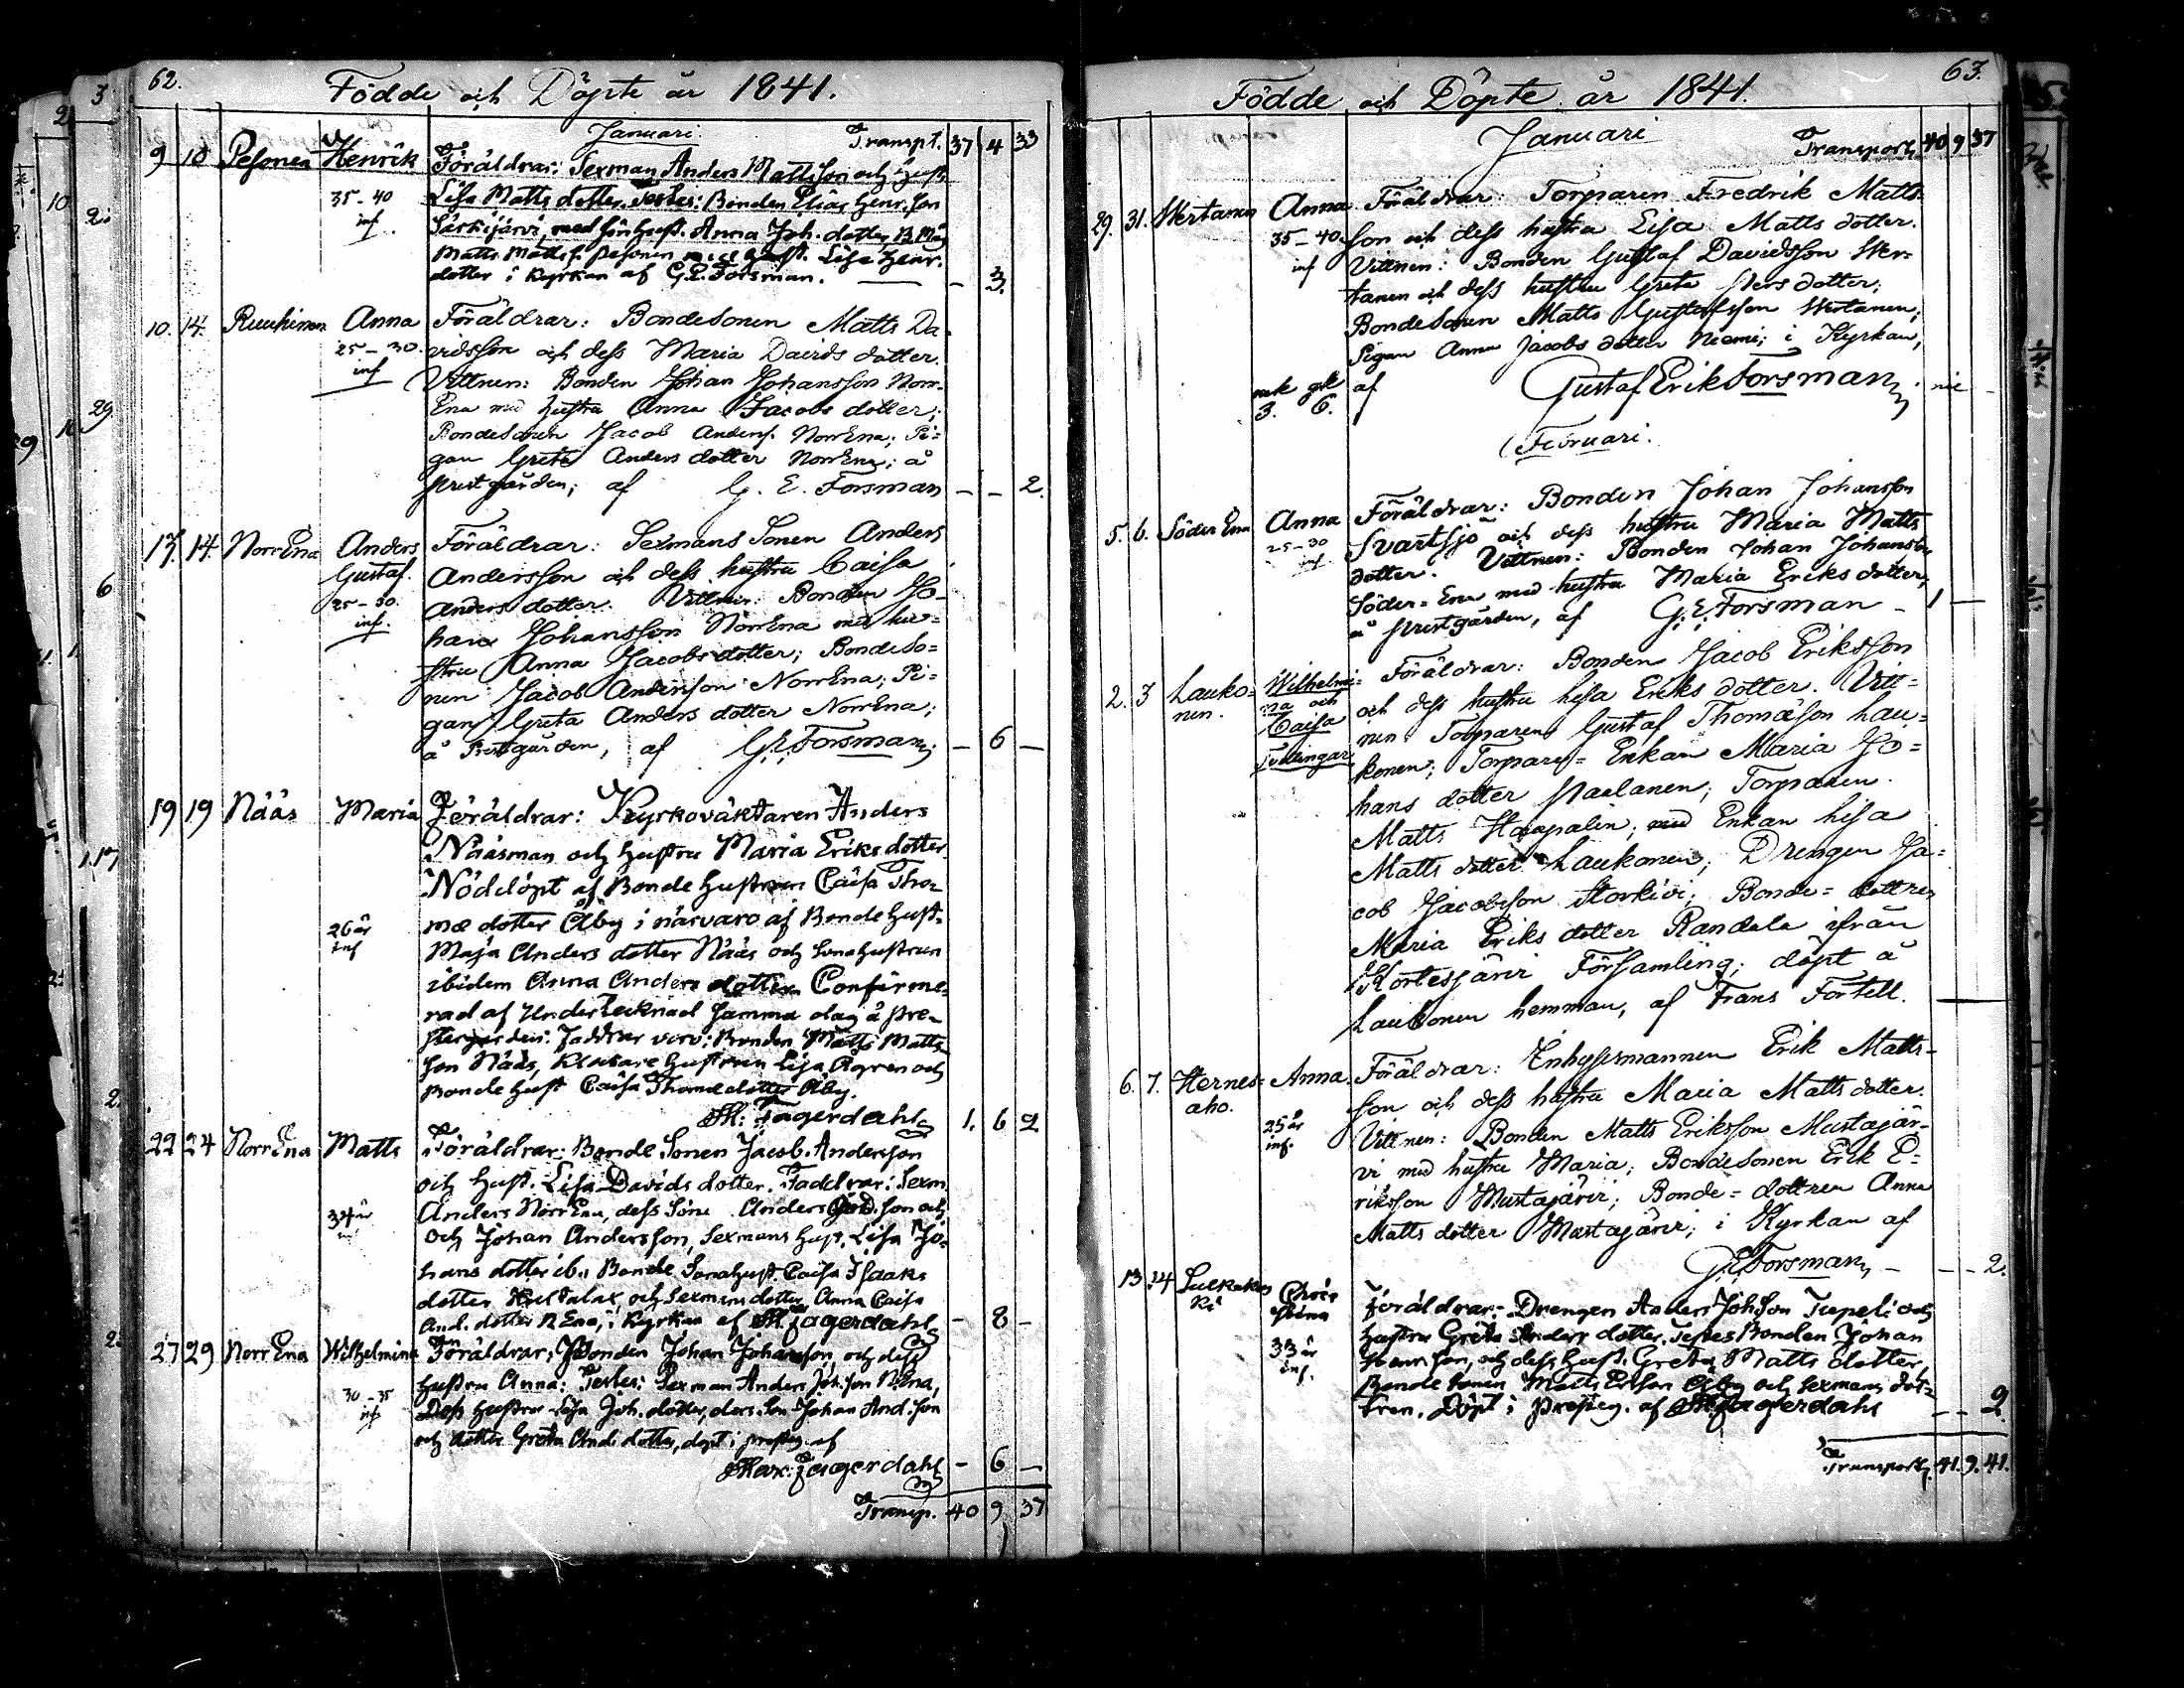 62.
Födde och Döpte år 1841.
Januari. Transpt. 37 4 33
9 10 Pesonen Henrik Föräldrar: Sexman Anders Mattsson och hust.
35-40 Lisa Matts dotter. Testes: Bonden Elias Henr.son
inf. Särkijärvi, med sin hust. Anna Joh. dotter, B.
Matts Matts s. Pesonen med hust. Lisa Henr.
dotter i Kyrkan af G.E. Forsman. — 3.
10. 14. Ruuhinen Anna Föräldrar: Bondesonen Matts Da-
25-30. vidsson och dess Maria Davids dotter.
inf Vittnen: Bonden Johan Johansson Norr-
Ena med hustru Anna Jacobs dotter;
Bondesonen Jacob Anders. NorrEna; Pi=
gan Greta Anders dotter NorrEna; å
Prestgården; af G. E. Forsman — — 2.
13. 14. NorrEna Anders Föräldrar: Sexmans Sonen Anders
Gustaf. Andersson och dess hustru Caisa
25-30. Anders dotter. Vittnen: Bonden Jo-
inf. han Johansson NorrEna med hu=
stru Anna Jacobs dotter; Bondeso=
nen Jacob Andersson NorrEna; Pi=
gan Greta Anders dotter NorrEna;
å Prestgården, af G.E. Forsman; — 6 —
19 19 Nääs Maria Föräldrar: Kyrkoväktaren Anders
Nääsman och hustru Maria Eriks dotter
Nöddöpt af Bonde hustrun Caisa Tho-
26 år mæ dotter Åby i närvaro af Bonde hust.
inf Maja Anders dotter Nääs och Sonehustrun
ibidem Anna Anders dotter Confirme-
rad af Undertecknad samma dag å Pre-
stgården: Faddrar voro: Bonden Matts Matts
son Nääs, Klockare hustrun Lisa Agren och
Bonde hust Caisa Thomæ dotter Åby.
M: Fagerdahl 1. 6 2
22 24 NorrEna Matts Föräldrar: Bonde Sonen Jacob Andersson
och hust. Lisa Davids dotter. Faddrar: Sexm.
34 år Anders NorrEna, dess Söne Anders And.son och
och Johan Andersson, Sexmans hust. Lisa Jo-
hans dotter ib., Bonde Sonehust. Caisa Isaaks
dotter, och Sexmans dotter Anna Caisa
And. dotter N Ena, i Kyrkan af M. Fagerdahl — 8 —
27 29 NorrEna Wilhelmina Föräldrar: Bonden Johan Johansson, och dess
30-35 hustru Anna: Testes: Sexman Anders Joh.son N.Ena,
inf Dess hustru Lisa Joh. dotter, ders Son Johan And.son
och dotter Greta And. dotter, döpt i prestg. af
Max: Fagerdahl — 6 —
Transp. 40 9 37
63.
Födde och Döpte år 1841.
Januari
Transport 40 9 37
29. 31. Wertanen Anna Föräldrar: Torparen Fredrik Matts-
35-40. son och dess hustru Lisa Matts dotter.
inf Vittnen: Bonden Gustaf Davidsson Wer-
tanen och dess hustru Greta Pers dotter;
Bondesonen Matts Gustafsson Wertanen;
Pigan Anna Jacobs dotter Niemi; i Kyrkan,
mk qk af Gustaf Erik Forsman
3. 6.
Februari.
5. 6. Söder Ena Anna Föräldrar: Bonden Johan Johansson
25-30 Svartsjö och dess hustru Maria Matts
inf. dotter. Vittnen: Bonden Johan Johansson
Söder=Ena med hustru Maria Eriks dotter;
å Prestgården, af G.E. Forsman — 1 —
2. 3 Lauko= Wilhelmi= Föräldrar: Bonden Jacob Eriksson
nen. na och och dess hustru Lisa Eriks dotter. Vitt=
Caisa nen: Torparen Gustaf Thomæson Lau=
Tvillingar konen; Torpare=Enkan Maria Jo=
hans dotter Paalanen; Torparen
Matts Haapalin; med Enkan Lisa
Matts dotter Laukonen; Drengen Ja=
cob Jacobsson Storkivi; Bonde=dottren
Maria Eriks dotter Randala ifrån
Kortesjärvi Församling; döpt å
Laukonen hemman, af Frans Fortell.
6. 7. Hernes= Anna. Föräldrar: Inhysesmannen Erik Matts-
aho. son och dess hustru Maria Matts dotter.
25 år Vittnen: Bonden Matts Eriksson Mustajär-
inf. vi med hustru Maria; Bondesonen Erik E=
riksson Mustajärvi; Bonde=dottren Anna
Matts dotter Mustajärvi; i Kyrkan af
G.E. Forsman — — — 2.
13. 24 Chris Föräldrar: Drengen Anders Joh.son Tupeli och
stina hustru Greta Anders dotter. Testes Bonden Johan
33 år Henr.son, och dess hust. Greta Matts dotter,
inf. Bonde Sonen Matts Ersson Åby och Sexmans dot-
tren. Döpt i Presteg. af M. Fagerdahl — — 2
Transport 41. 9. 41.